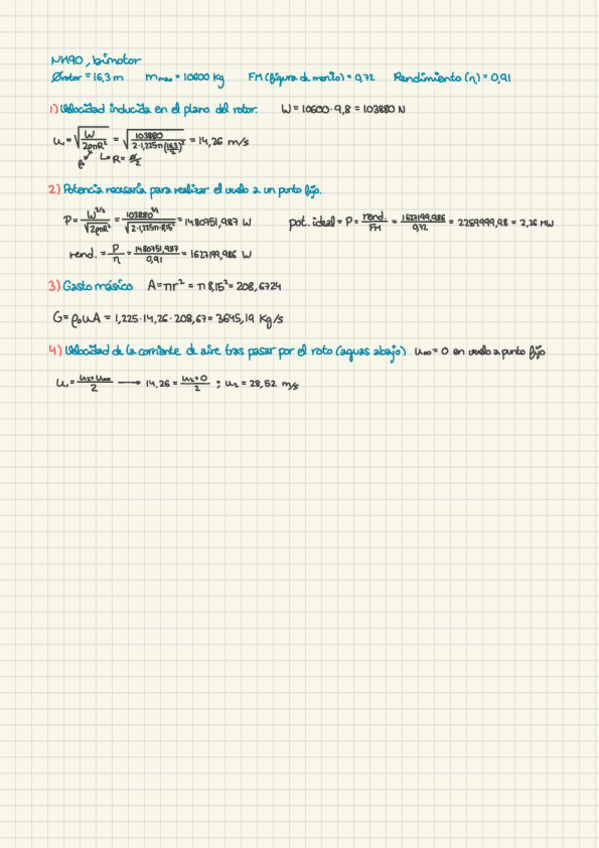 NH90, bimotor
Ørotor = 16,3 m mmax = 10600 kg FM (figura de merito) = 0,72 Rendimiento (η) = 0,91
1) Velocidad inducida en el plano del rotor. W = 10600 · 9,8 = 103880 N
u = √(W / 2ρπR²) = √(103880 / 2·1,225π(16,3/2)²) = 14,26 m/s
ρ₀ ↳ R = Ø/2
2) Potencia necesaria para realizar el vuelo a un punto fijo.
P = W^3/2 / √2ρπR² = 103880^3/2 / √2·1,225π·8,15² = 1480751,987 W pot. ideal = P = rend. / FM = 1627199,986 / 0,72 = 2259999,98 = 2,26 MW
rend. = P / η = 1480751,987 / 0,91 = 1627199,986 W
3) Gasto másico A = πr² = π 8,15² = 208,6724
G = ρ₀uA = 1,225 · 14,26 · 208,67 = 3645,19 Kg/s
4) Velocidad de la corriente de aire tras pasar por el roto (aguas abajo) u∞ = 0 en vuelo a punto fijo
u = u₂+u∞ / 2 ⟶ 14,26 = u₂+0 / 2 ; u₂ = 28,52 m/s